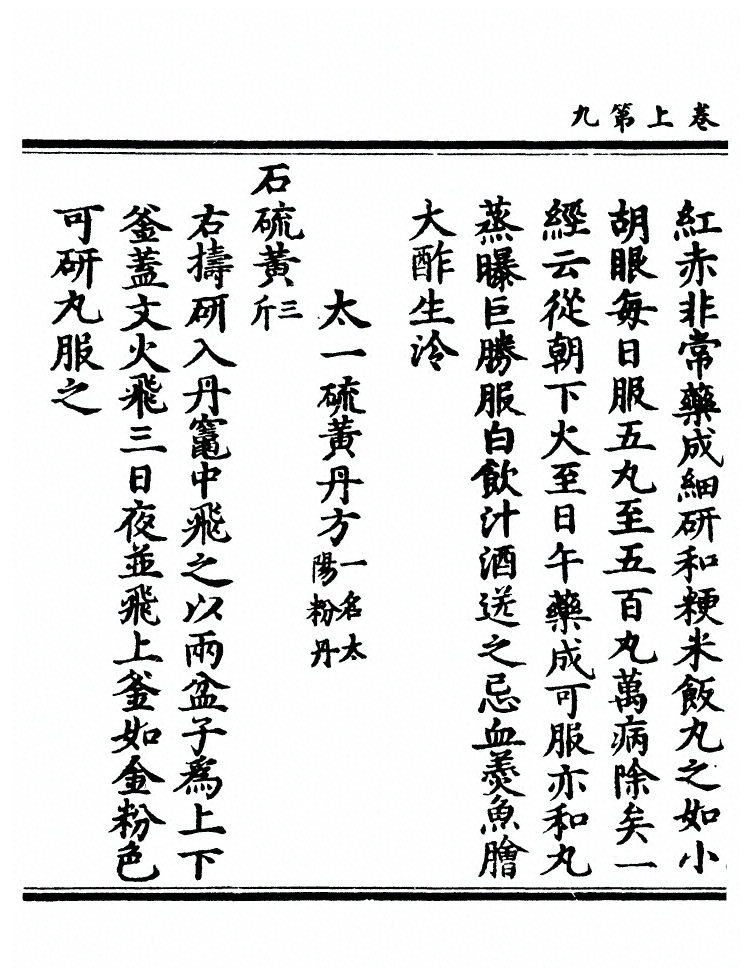 卷上第九
紅赤非常藥成細研和粳米飯丸之如小
胡眼每日服五丸至五百丸萬病除矣一
經云從朝下火至日午藥成可服亦和丸
蒸曝巨勝服白飲汁酒送之忌血羹魚膾
大酢生冷
太一硫黃丹方一名太陽粉丹
石硫黃三斤
右擣研入丹竈中飛之以兩盆子爲上下
釜蓋文火飛三日夜並飛上釜如金粉色
可研丸服之